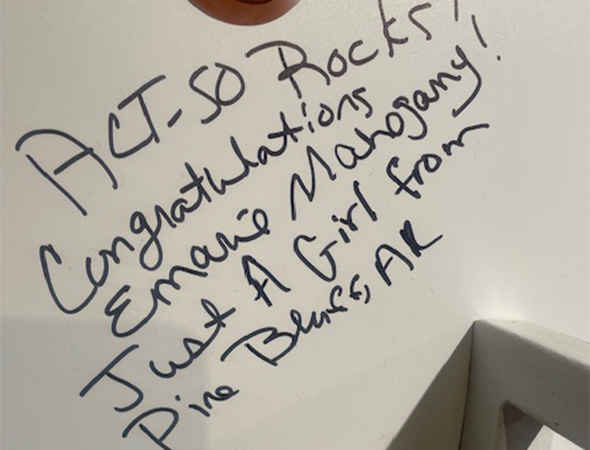 ACT-SO Rocks!
Congratulations
Emarie Mahogany!
Just A Girl from
Pine Bluff, AR